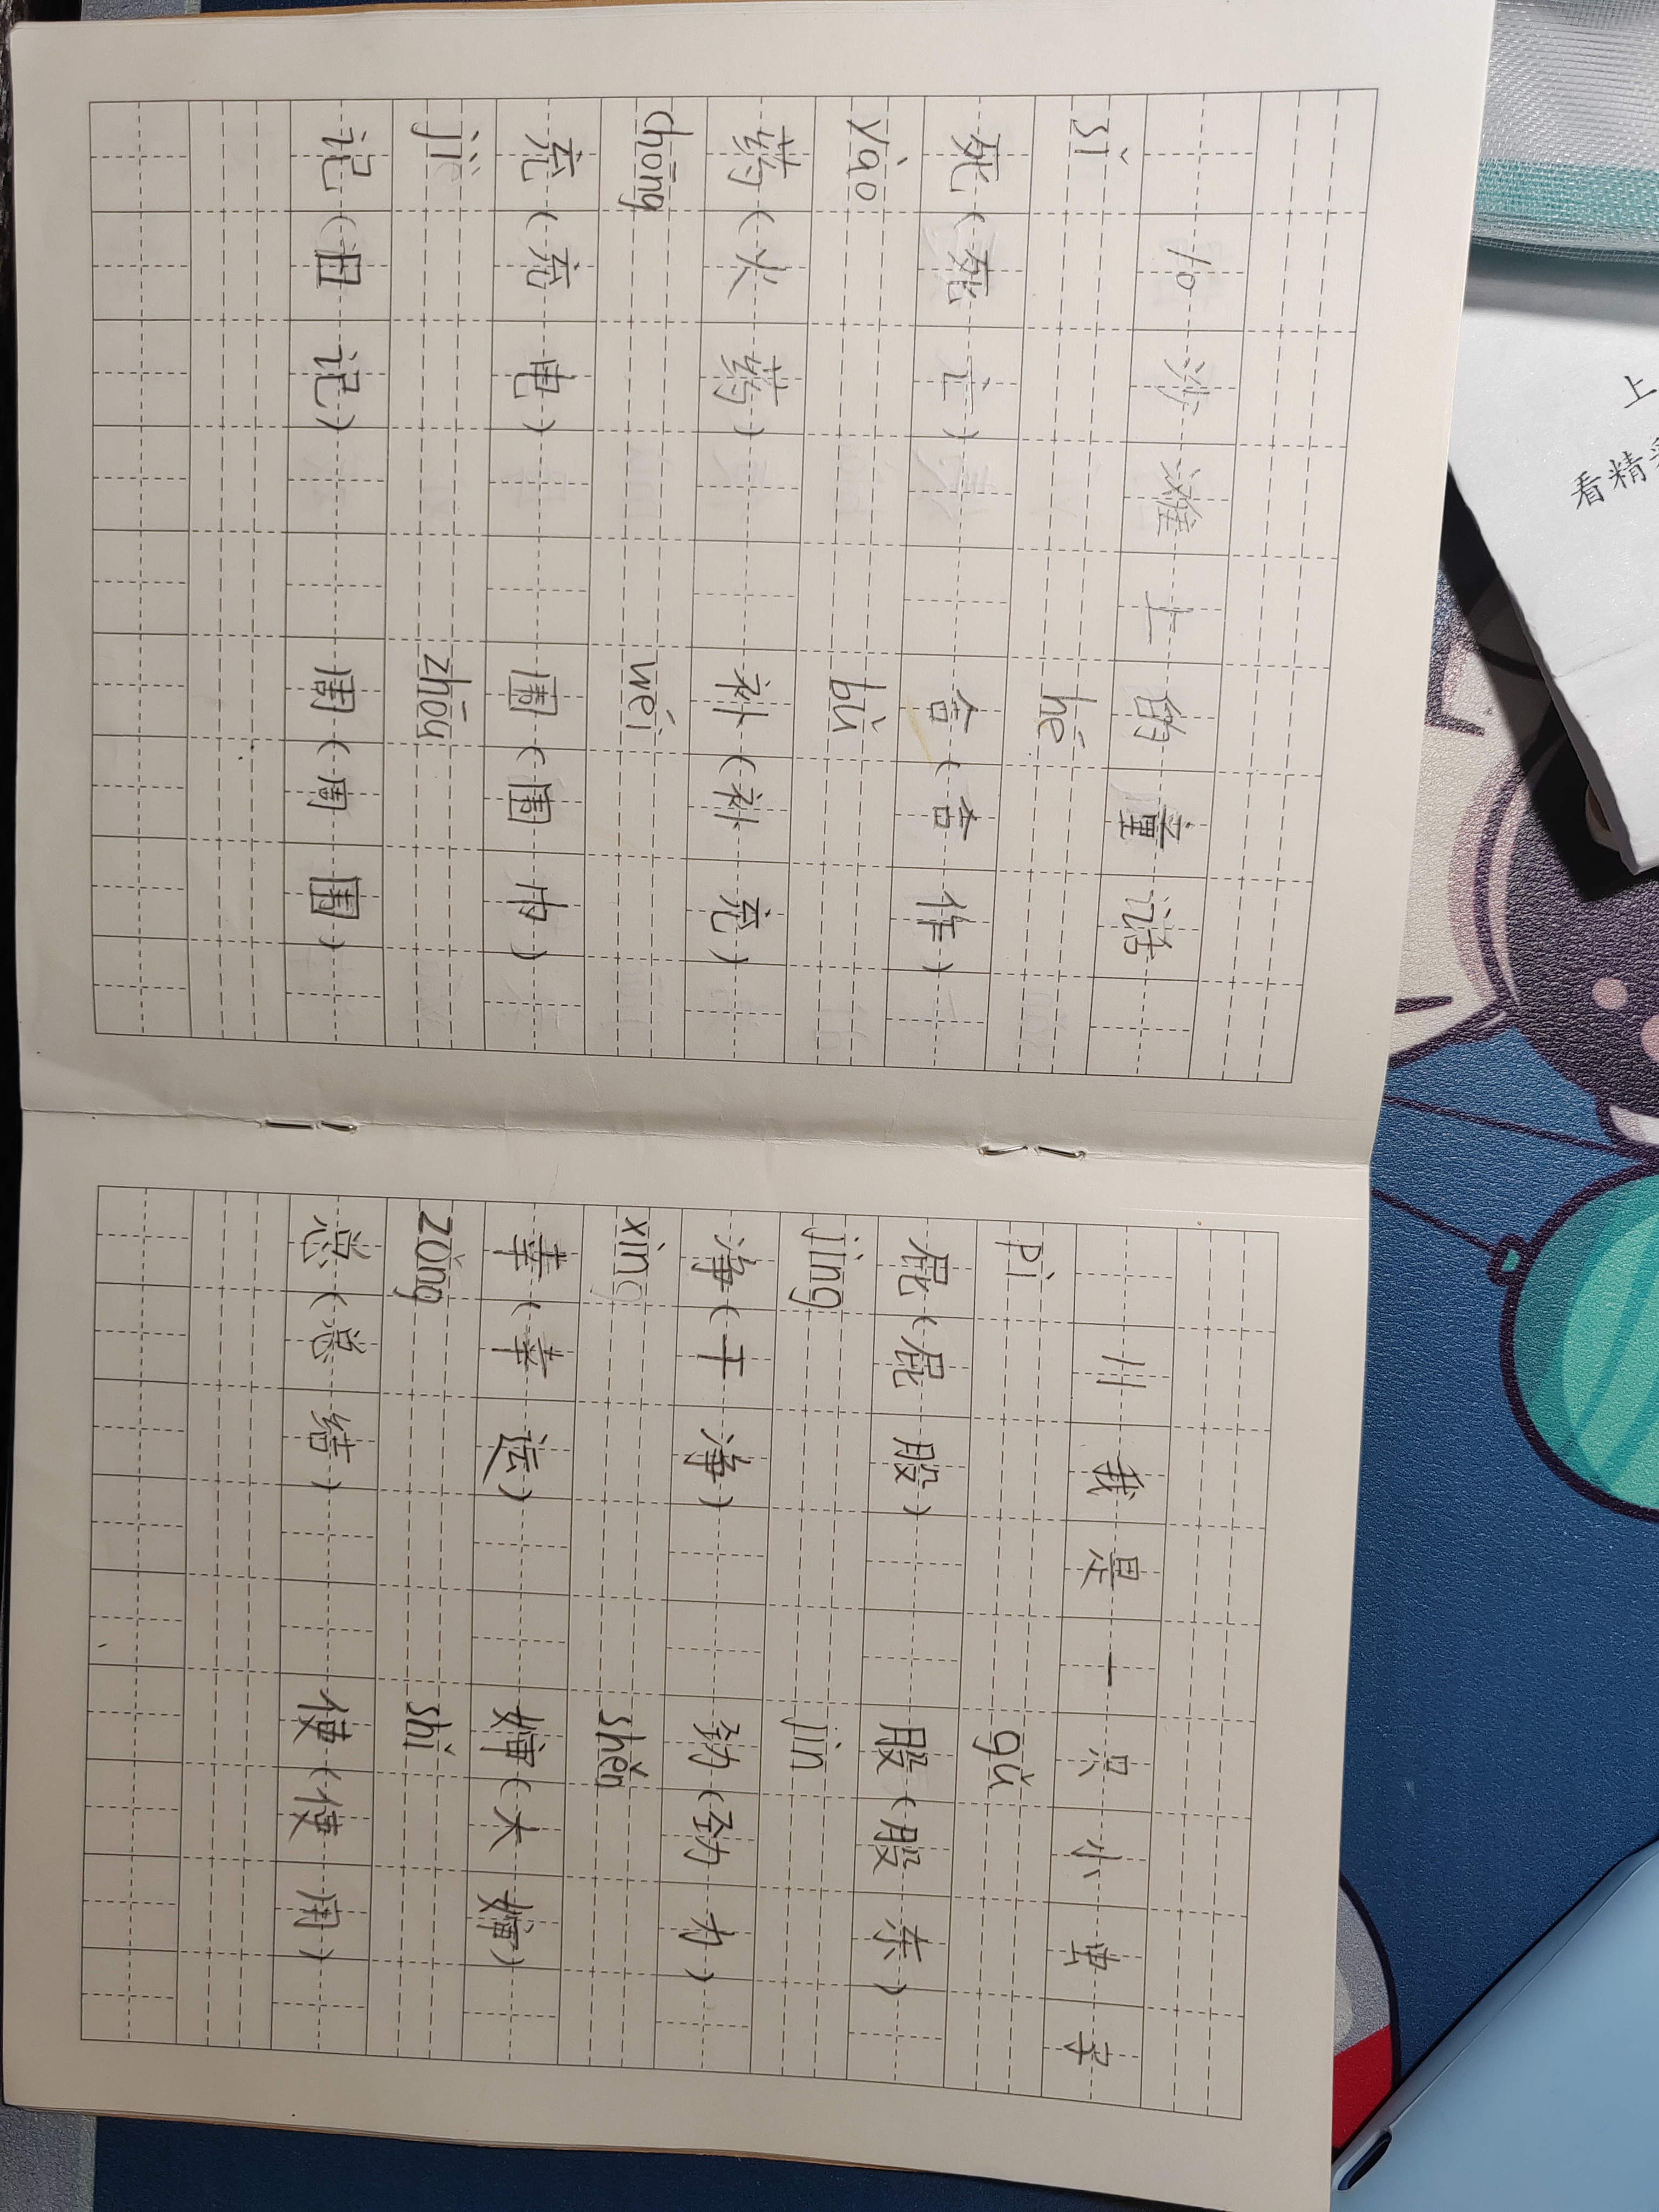 10 沙滩上的童话
sǐ hé
死(死亡) 合(合作)
yào bǔ
药(火药) 补(补充)
chōng wéi
充(充电) 围(围巾)
jì zhōu
记(日记) 周(周围)
11 我是一只小虫子
pì gǔ
屁(屁股) 股(股东)
jìng jìn
净(干净) 劲(劲力)
xìng shěn
幸(幸运) 婶(大婶)
zǒng shǐ
总(总结) 使(使用)
上
看精